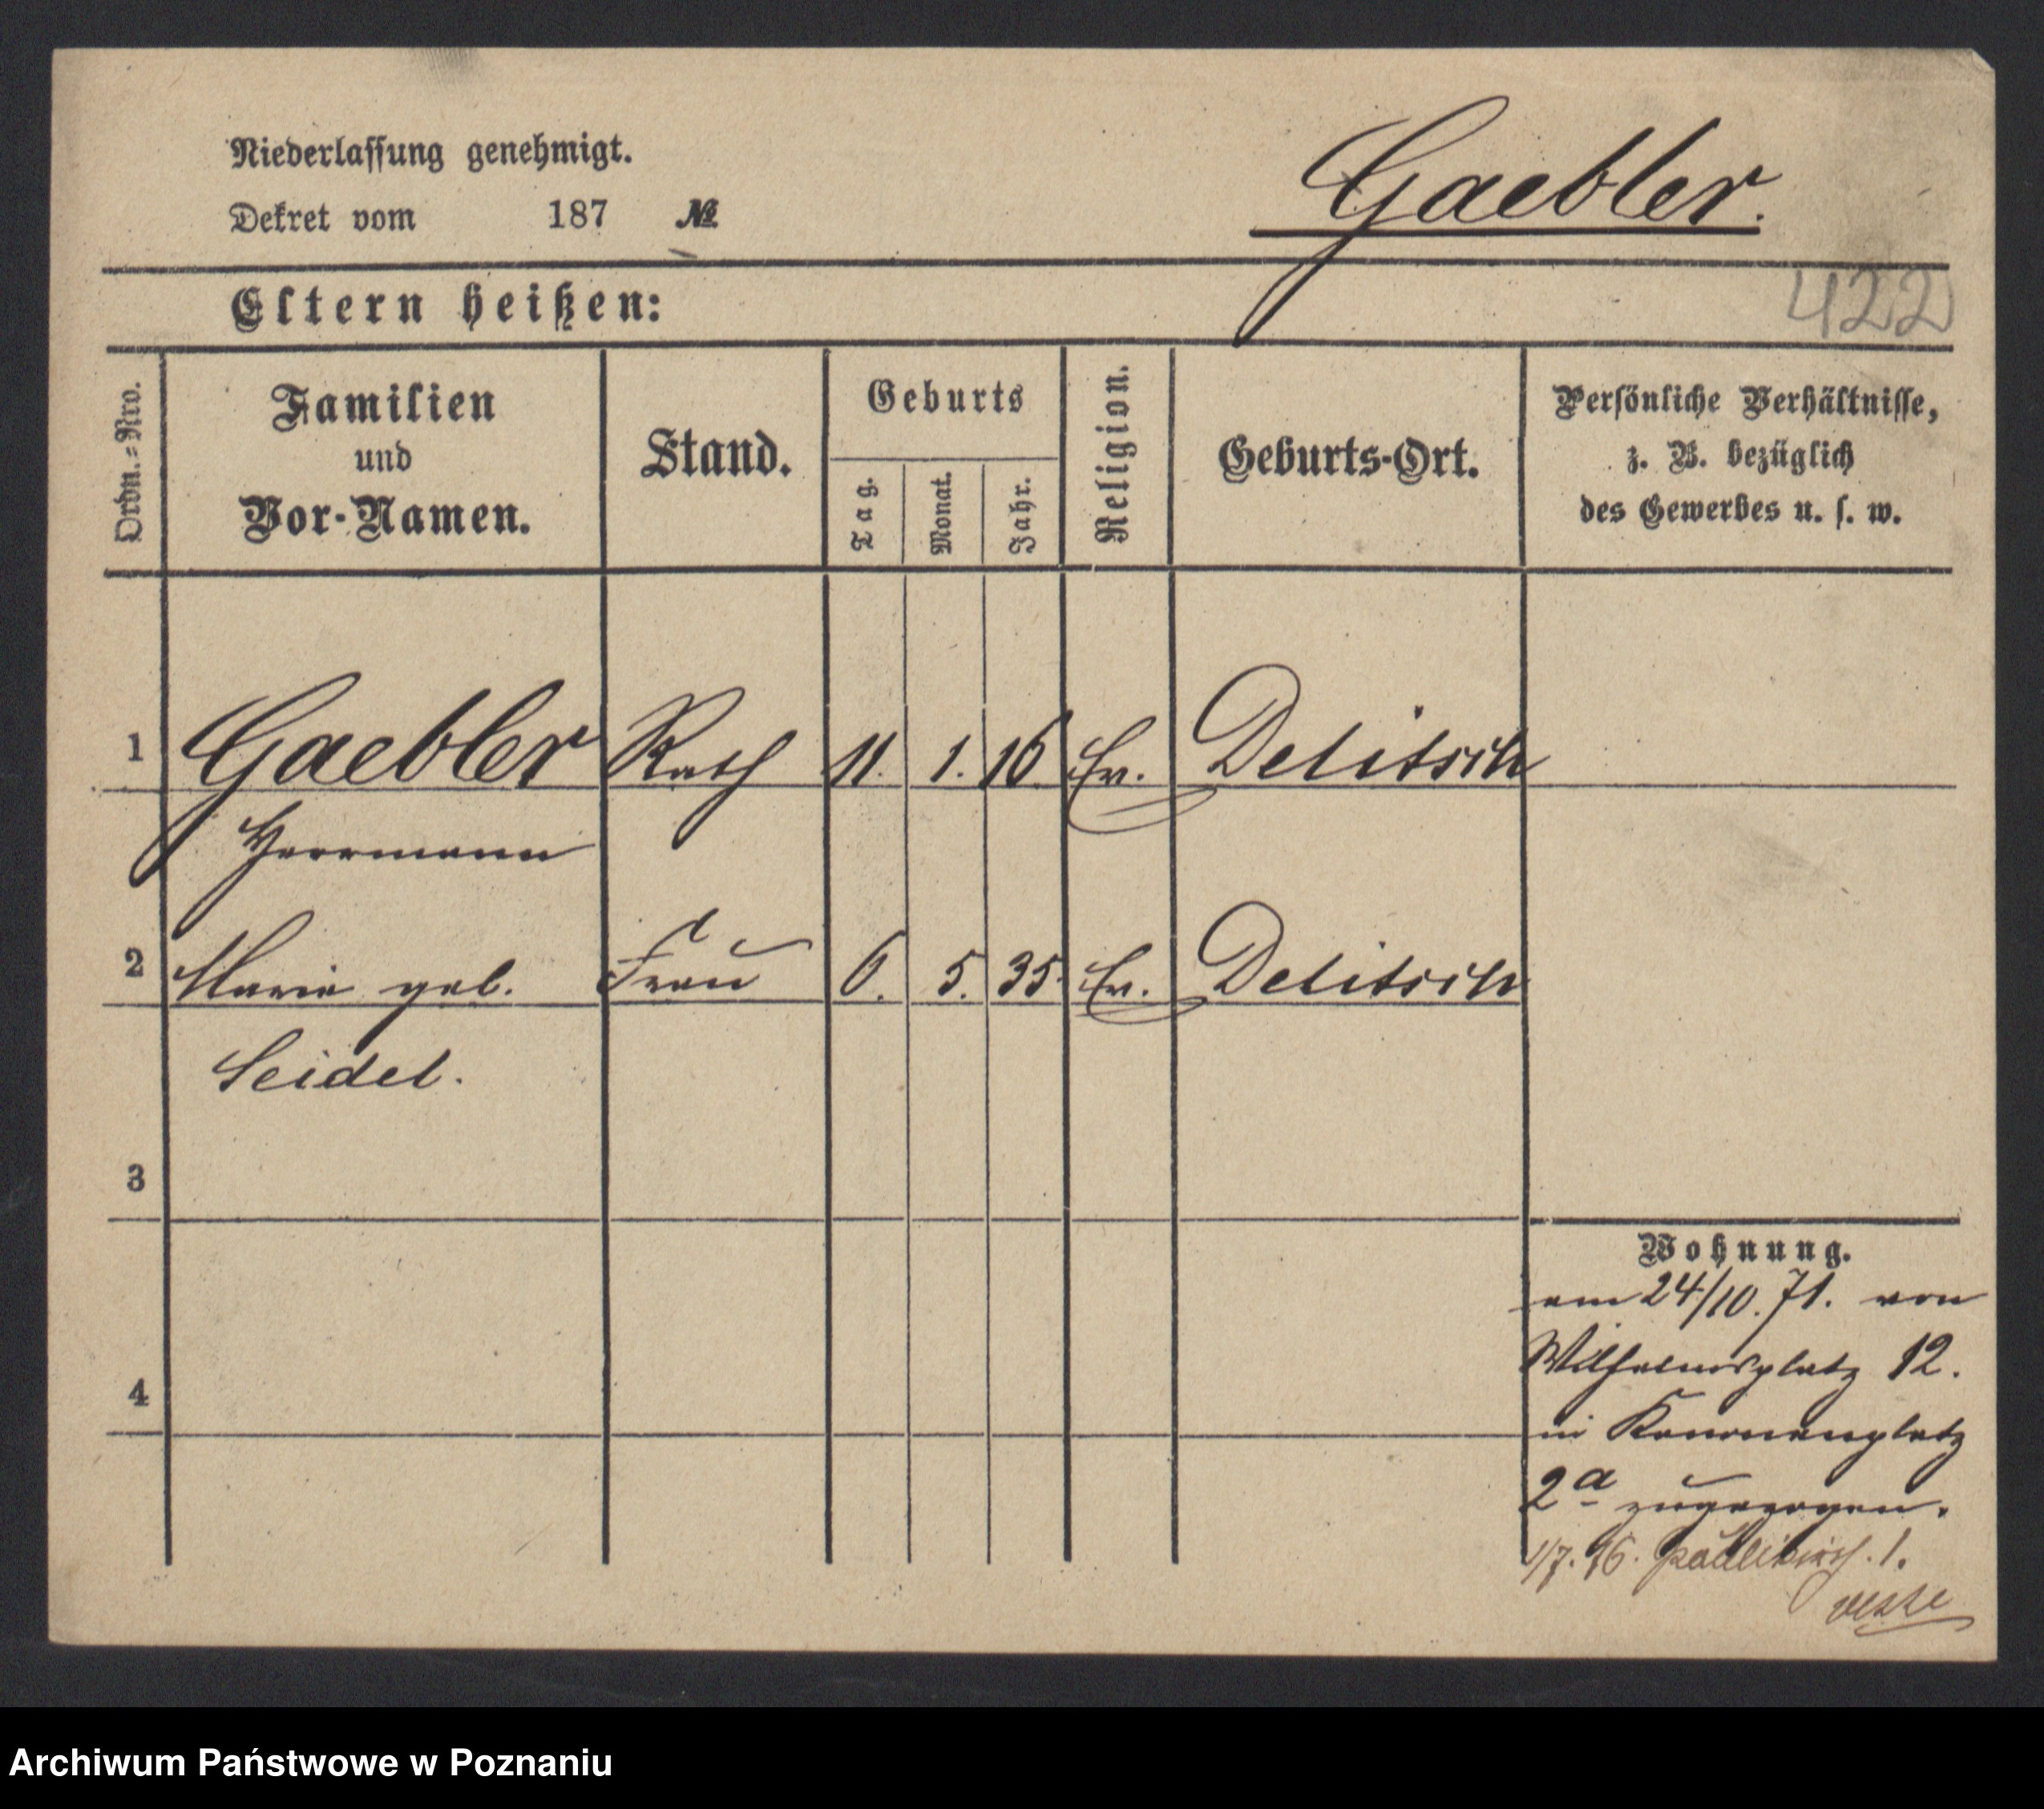 Niederlassung genehmigt.
Dekret vom 187 №
Gaebler.
422
Eltern heißen:
Ordn.=Nro.
Familien
und
Vor-Namen.
Stand.
Geburts
Tag.
Monat.
Jahr.
Religion.
Geburts-Ort.
Persönliche Verhältnisse,
z. B. bezüglich
des Gewerbes u. s. w.
1 Gaebler Rath 11. 1. 16. Ev. Delitsch
Herrmann
2 Marie geb. Frau 6. 5. 35. Ev. Delitsch
Seidel.
3
4
Wohnung.
am 24/10. 71. von
Wilhelmsplatz 12.
in Kanonenplatz
2a zugezogen.
1/7. 76. Paulikirch. 1.
Archiwum Państwowe w Poznaniu